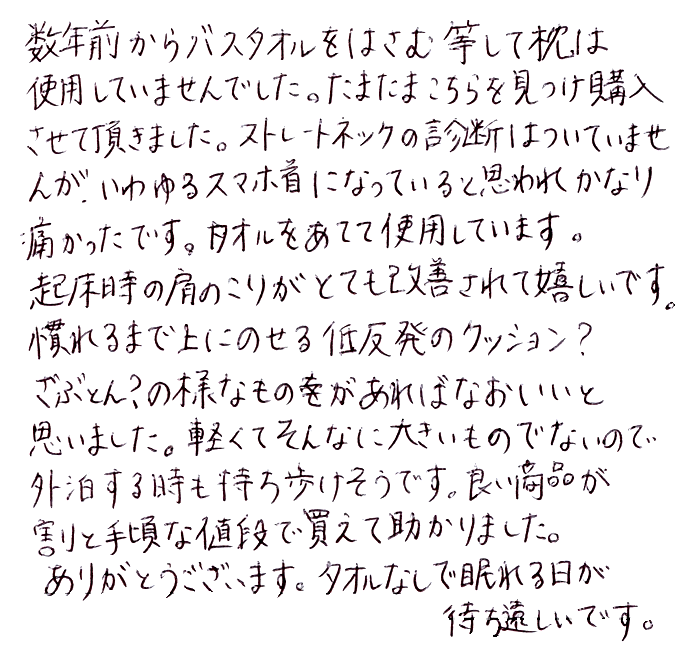 数年前からバスタオルをはさむ等して枕は
使用していませんでした。たまたまこちらを見つけ購入
させて頂きました。ストレートネックの診断はついていませ
んが、いわゆるスマホ首になっていると思われかなり
痛かったです。タオルをあてて使用しています。
起床時の肩のこりがとても改善されて嬉しいです。
慣れるまで上にのせる低反発のクッション？
ざぶとん？の様なものをがあればなおいいと
思いました。軽くてそんなに大きいものでないので
外泊する時も持ち歩けそうです。良い商品が
割りと手頃な値段で買えて助かりました。
ありがとうございます。タオルなしで眠れる日が
待ち遠しいです。